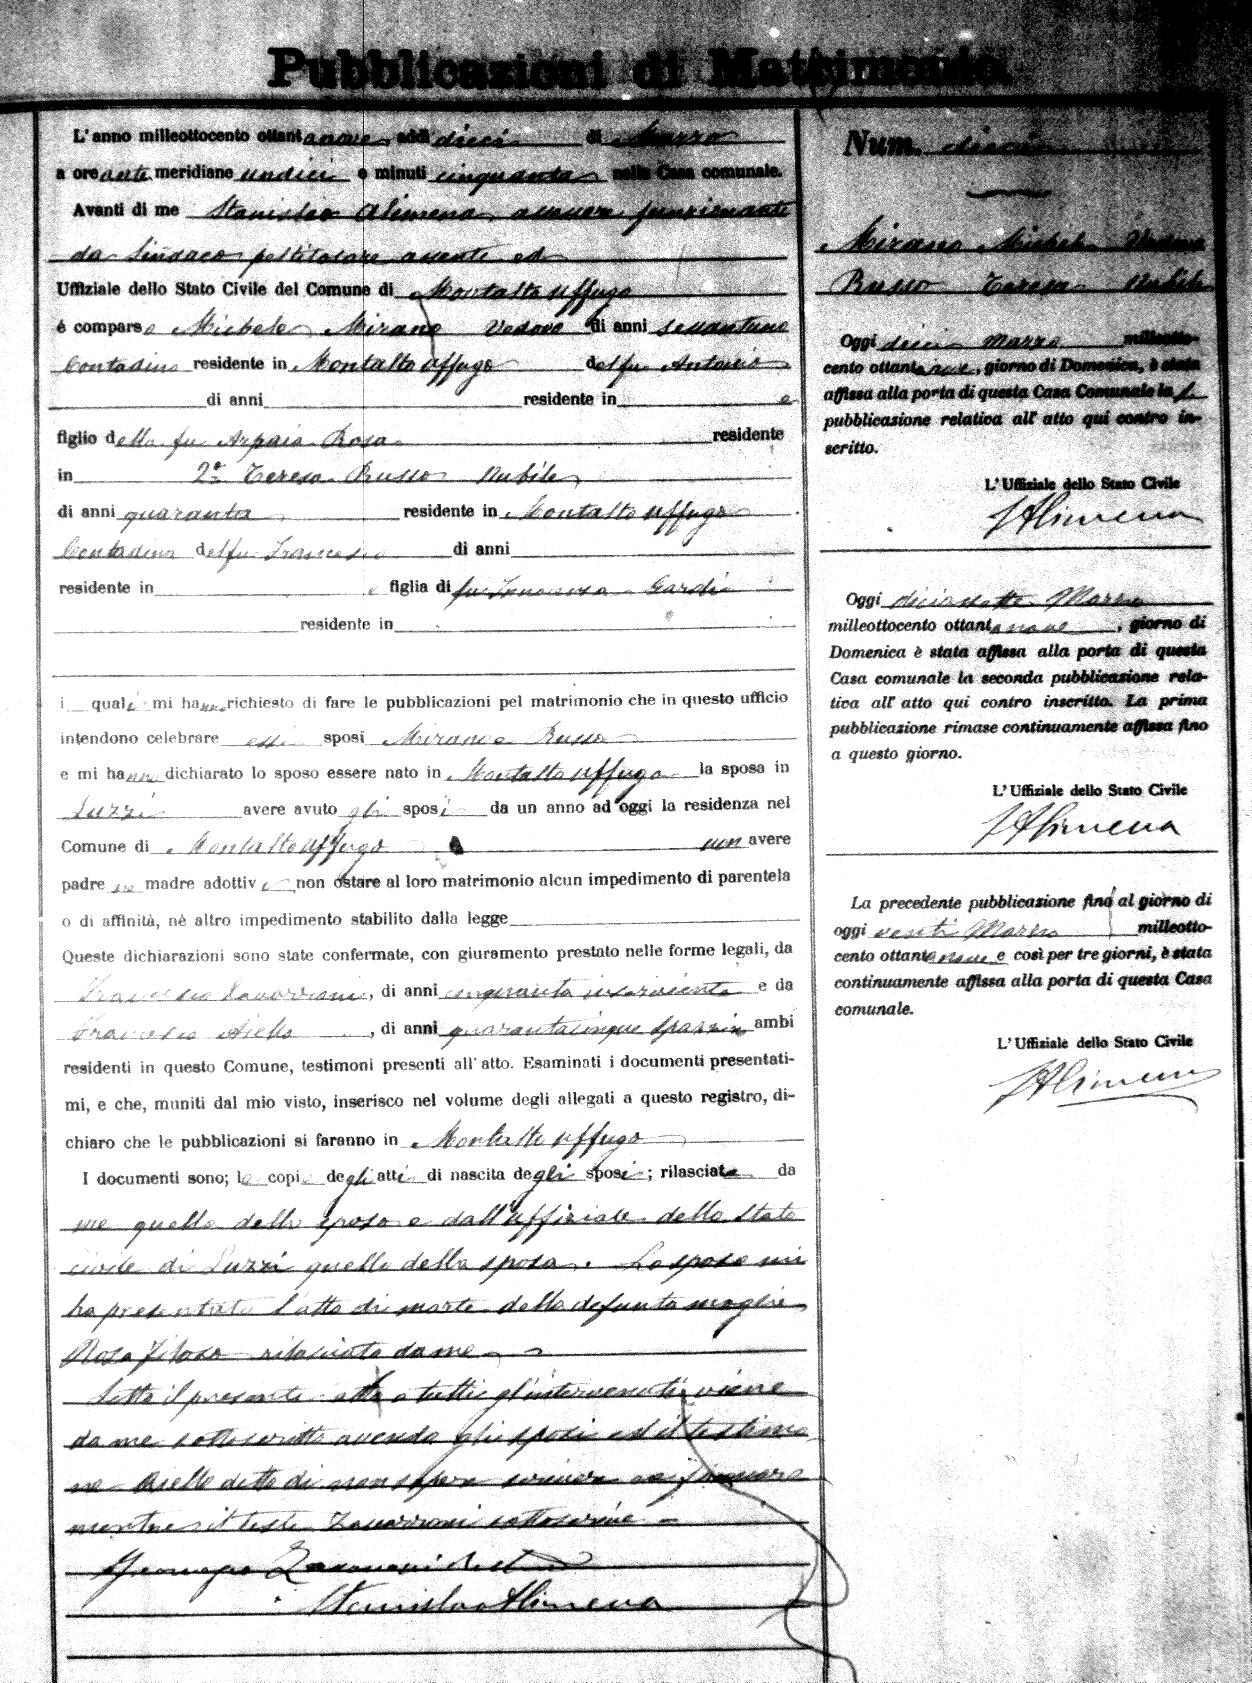 Pubblicazioni di Matrimonio.
L'anno milleottocento ottantanove addì dieci di Marzo
a ore anti meridiane undici e minuti cinquanta nella Casa comunale.
Avanti di me Stanislao Alimena funzionante
da Sindaco pel titolare assente ed
Uffiziale dello Stato Civile del Comune di Montalto Uffugo
è comparso Michele Mirano Vedovo di anni sessantuno
Contadino residente in Montalto Uffugo del fu Antonio
di anni residente in e
figlio della fu Arpaia Rosa residente
in 2ª Teresa Russo Nubile
di anni quaranta residente in Montalto Uffugo
Contadina del fu Francesco di anni
residente in e figlia di fu Innocenza Gardi
residente in
i quali mi hanno richiesto di fare le pubblicazioni pel matrimonio che in questo ufficio
intendono celebrare essi sposi Mirano e Russo
e mi hanno dichiarato lo sposo essere nato in Montalto Uffugo la sposa in
Luzzi avere avuto gli sposi da un anno ad oggi la residenza nel
Comune di Montalto Uffugo non avere
padre ne madre adottivi non ostare al loro matrimonio alcun impedimento di parentela
o di affinità, nè altro impedimento stabilito dalla legge
Queste dichiarazioni sono state confermate, con giuramento prestato nelle forme legali, da
Francesco Zavarroni, di anni cinquanta inserviente e da
Francesco Aiello, di anni quarantacinque spazzino ambi
residenti in questo Comune, testimoni presenti all'atto. Esaminati i documenti presentati-
mi, e che, muniti dal mio visto, inserisco nel volume degli allegati a questo registro, di-
chiaro che le pubblicazioni si faranno in Montalto Uffugo
I documenti sono; le copie degli atti di nascita degli sposi; rilasciate da
me quella dello sposo e dall'uffiziale dello stato
civile di Luzzi quella della sposa. Lo sposo mi
ha presentato l'atto di morte della defunta moglie
Rosa Filoso rilasciato da me
Letto il presente atto a tutti gl'intervenuti viene
da me sottoscritto avendo gli sposi ed il testimo
ne Aiello detto di non sapere scrivere
mentre il teste Zavarroni sottoscrive
Zavarroni
Stanislao Alimena
Num. dieci
Mirano Michele Vedovo
Russo Teresa Nubile
Oggi dieci Marzo milleotto-
cento ottantanove, giorno di Domenica, è stata
affissa alla porta di questa Casa Comunale la
pubblicazione relativa all'atto qui contro in-
scritto.
L'Uffiziale dello Stato Civile
SAlimena
Oggi diciassette Marzo
milleottocento ottantanove, giorno di
Domenica è stata affissa alla porta di questa
Casa comunale la seconda pubblicazione rela-
tiva all'atto qui contro inscritto. La prima
pubblicazione rimase continuamente affissa fino
a questo giorno.
L'Uffiziale dello Stato Civile
SAlimena
La precedente pubblicazione fino al giorno di
oggi venti Marzo milleotto-
cento ottantanove e così per tre giorni, è stata
continuamente affissa alla porta di questa Casa
comunale.
L'Uffiziale dello Stato Civile
SAlimena